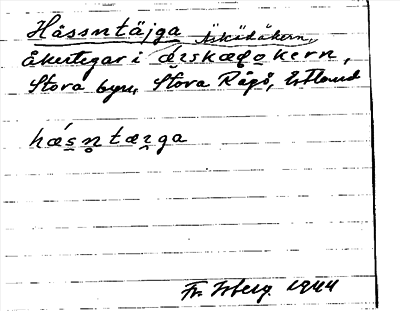 Hässntäjga
Åskädåkern,
åkertegar i æiskædo̥kern,
Stora byn, Stora Rågö, Estland
hǽsn̥tæi̯ga
Fr. Isberg 1944